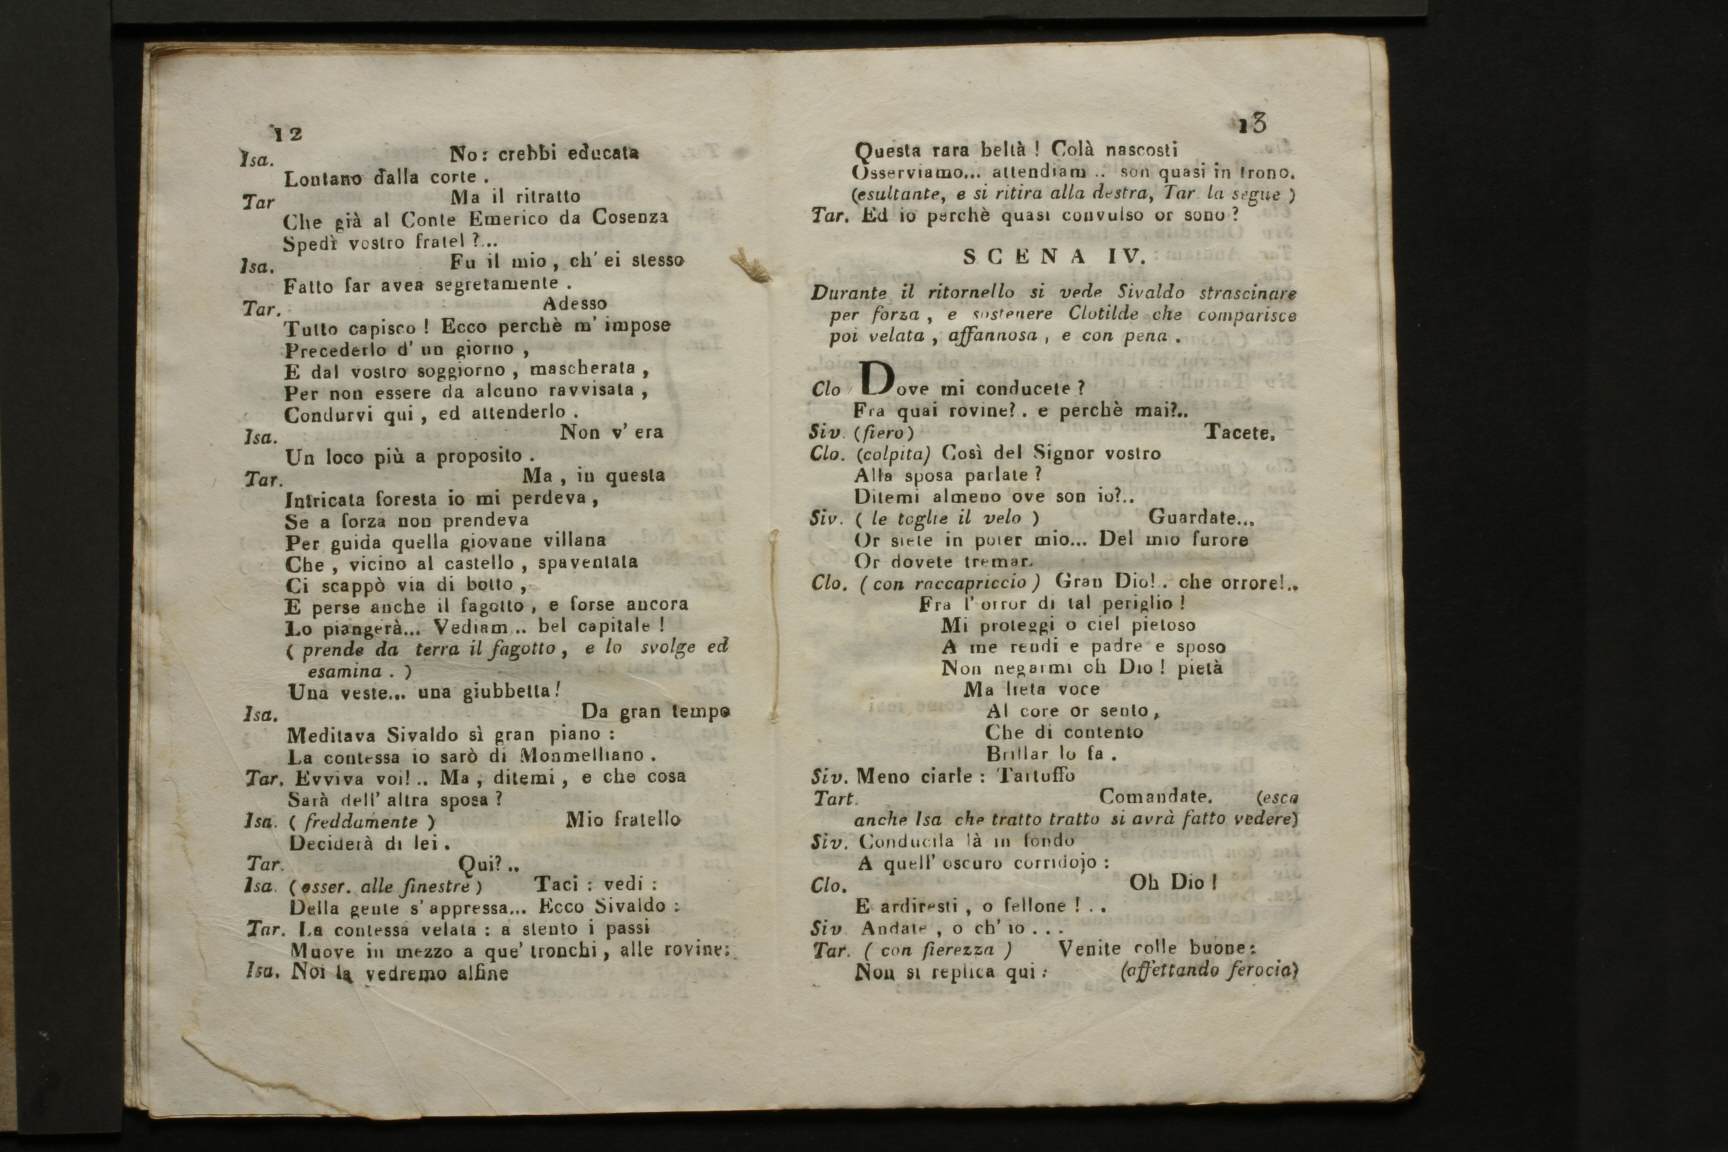 12
Isa. No: crebbi educata
Lontano dalla corte.
Tar Ma il ritratto
Che già al Conte Emerico da Cosenza
Spedì vostro fratel?...
Isa. Fu il mio, ch' ei stesso
Fatto far avea segretamente.
Tar. Adesso
Tutto capisco! Ecco perchè m' impose
Precederlo d' un giorno,
E dal vostro soggiorno, mascherata,
Per non essere da alcuno ravvisata,
Condurvi qui, ed attenderlo.
Isa. Non v' era
Un loco più a proposito.
Tar. Ma, in questa
Intricata foresta io mi perdeva,
Se a forza non prendeva
Per guida quella giovane villana
Che, vicino al castello, spaventata
Ci scappò via di botto,
E perse anche il fagotto, e forse ancora
Lo piangerà... Vediam... bel capitale!
(prende da terra il fagotto, e lo svolge ed
esamina.)
Una veste... una giubbetta!
Isa. Da gran tempo
Meditava Sivaldo sì gran piano:
La contessa io sarò di Monmelliano.
Tar. Evviva voi!.. Ma, ditemi, e che cosa
Sarà dell' altra sposa?
Isa. (freddamente) Mio fratello
Deciderà di lei.
Tar. Qui?..
Isa. (osser. alle finestre) Taci: vedi:
Della gente s' appressa... Ecco Sivaldo:
Tar. La contessa velata: a stento i passi
Muove in mezzo a que' tronchi, alle rovine:
Isa. Noi la vedremo alfine
13
Questa rara beltà! Colà nascosti
Osserviamo... attendiam.. son quasi in trono.
(esultante, e si ritira alla destra, Tar. la segue)
Tar. Ed io perchè quasi convulso or sono?
SCENA IV.
Durante il ritornello si vede Sivaldo strascinare
per forza, e sostenere Clotilde che comparisce
poi velata, affannosa, e con pena.
Clo Dove mi conducete?
Fra quai rovine?. e perchè mai?..
Siv. (fiero) Tacete.
Clo. (colpita) Così del Signor vostro
Alla sposa parlate?
Ditemi almeno ove son io?..
Siv. (le toglie il velo) Guardate...
Or siete in poter mio... Del mio furore
Or dovete tremar.
Clo. (con raccapriccio) Gran Dio!. che orrore!..
Fra l' orror di tal periglio!
Mi proteggi o ciel pietoso
A me rendi e padre e sposo
Non negarmi oh Dio! pietà
Ma lieta voce
Al core or sento,
Che di contento
Brillar lo fa.
Siv. Meno ciarle: Tartuffo
Tart. Comandate. (esca
anche Isa che tratto tratto si avrà fatto vedere)
Siv. Conducila là in fondo
A quell' oscuro corridojo:
Clo. Oh Dio!
E ardiresti, o fellone!..
Siv Andate, o ch' io...
Tar. (con fierezza) Venite colle buone:
Non si replica qui: (affettando ferocia)